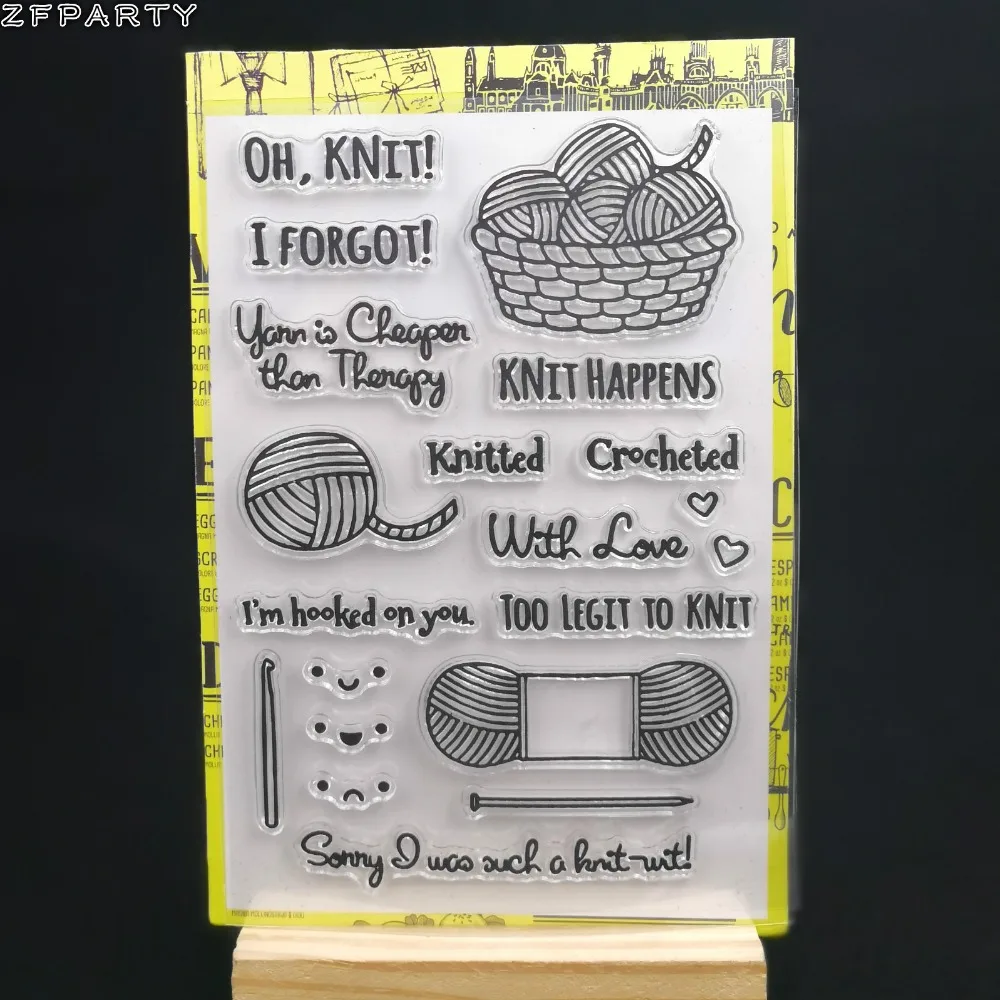 ZFPARTY
OH, KNIT!
I FORGOT!
Yarn is Cheaper
than Therapy
KNIT HAPPENS
Knitted
Crocheted
With Love
I'm hooked on you.
TOO LEGIT TO KNIT
Sorry I was such a knit-wit!